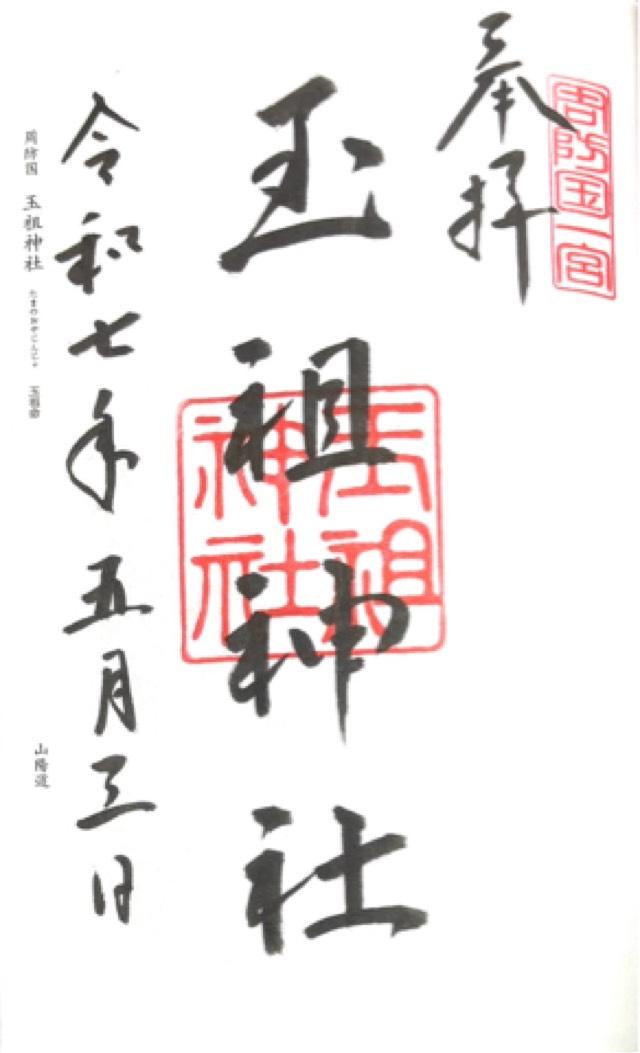 奉拝
周防国一宮
玉祖神社
玉祖神社
令和七年五月三日
周防国 玉祖神社 たまのおやじんじゃ 玉祖命
山陽道